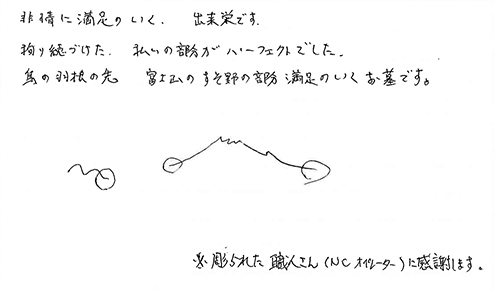 非情に満足のいく、 出来栄です。
拘り続づけた、 私いの部分がパーフェクトでした。
鳥の羽根の先 富士山のすそ野の部分 満足のいくお墓です。
※彫られた職人さん(NCオペレーター)に感謝します。